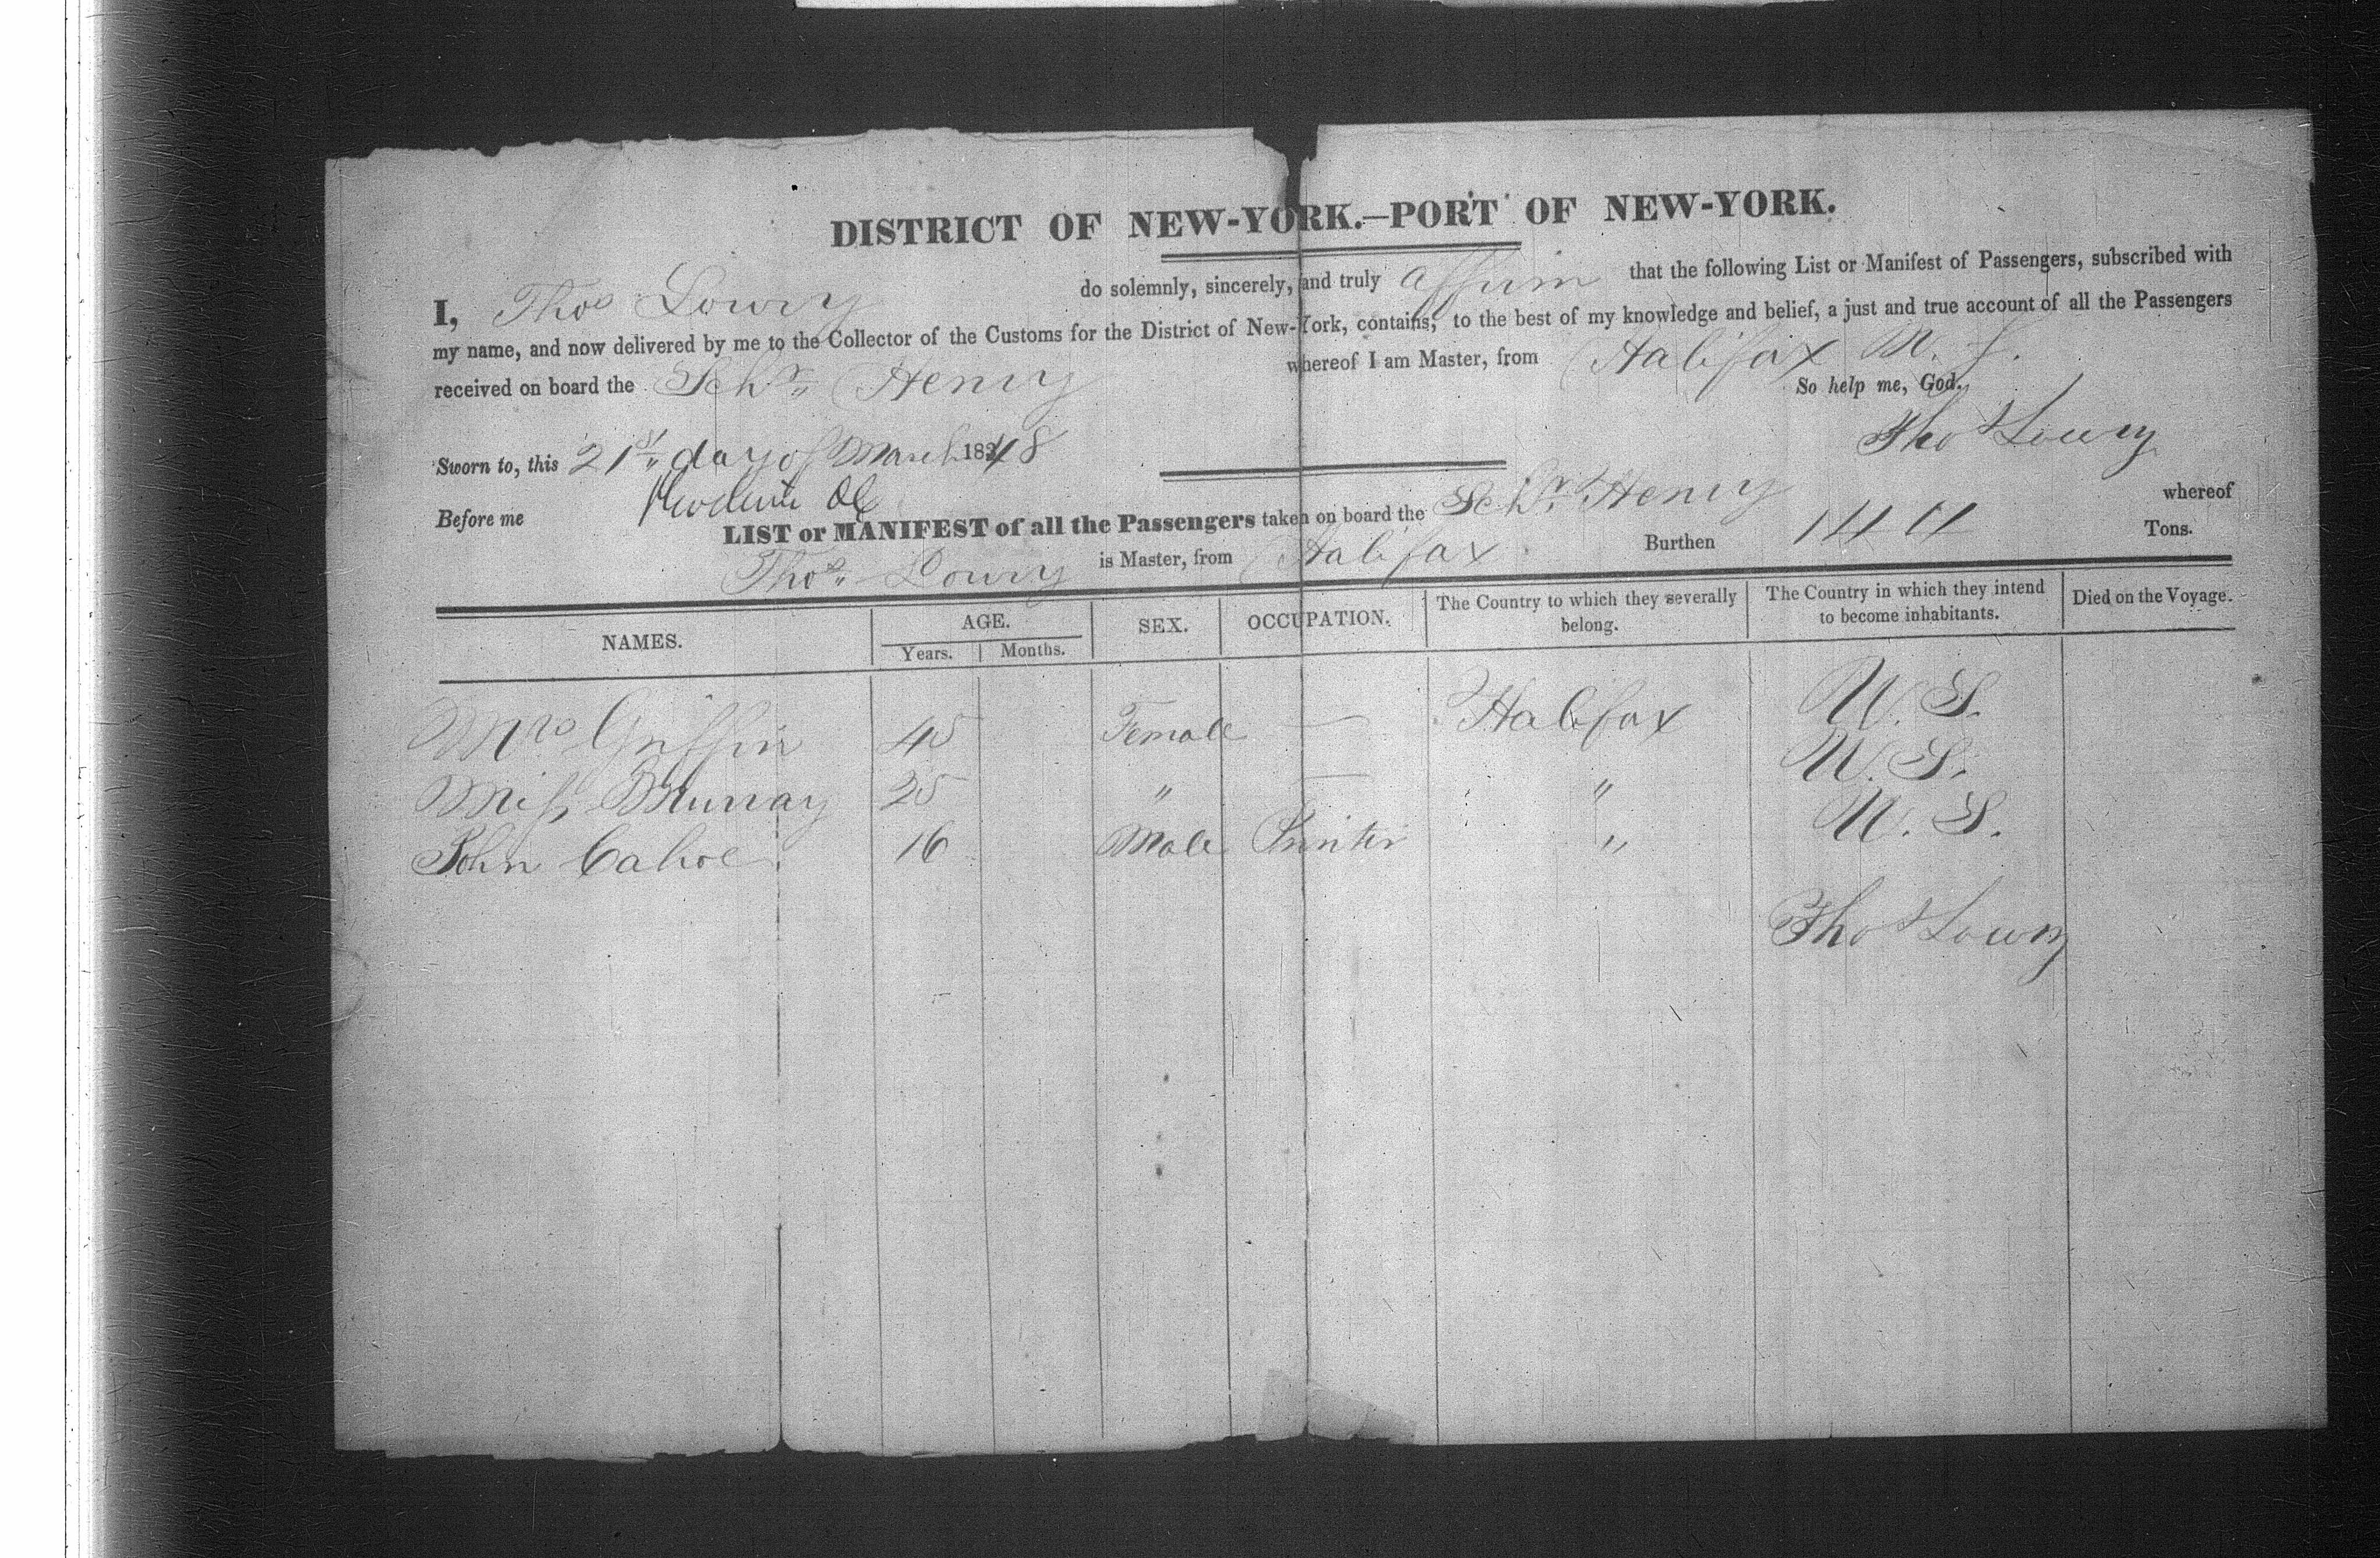 DISTRICT OF NEW-YORK.—PORT OF NEW-YORK.
I, Thos Lowry do solemnly, sincerely, and truly affirm that the following List or Manifest of Passengers, subscribed with
my name, and now delivered by me to the Collector of the Customs for the District of New-York, contains, to the best of my knowledge and belief, a just and true account of all the Passengers
received on board the Schr Henry whereof I am Master, from Halifax N. S.
So help me, God.
Sworn to, this 21st day of March 1848 Thos Lowry
Before me
LIST or MANIFEST of all the Passengers taken on board the Schr Henry whereof
Thos Lowry is Master, from Halifax Burthen Tons.
NAMES. AGE. SEX. OCCUPATION. The Country to which they severally belong. The Country in which they intend to become inhabitants. Died on the Voyage.
Years. Months.
Mrs Griffin 45 Female — Halifax U. S.
Miss Murray 25 " — " U. S.
John Cahoe 16 Male Printer " U. S.
Thos Lowry